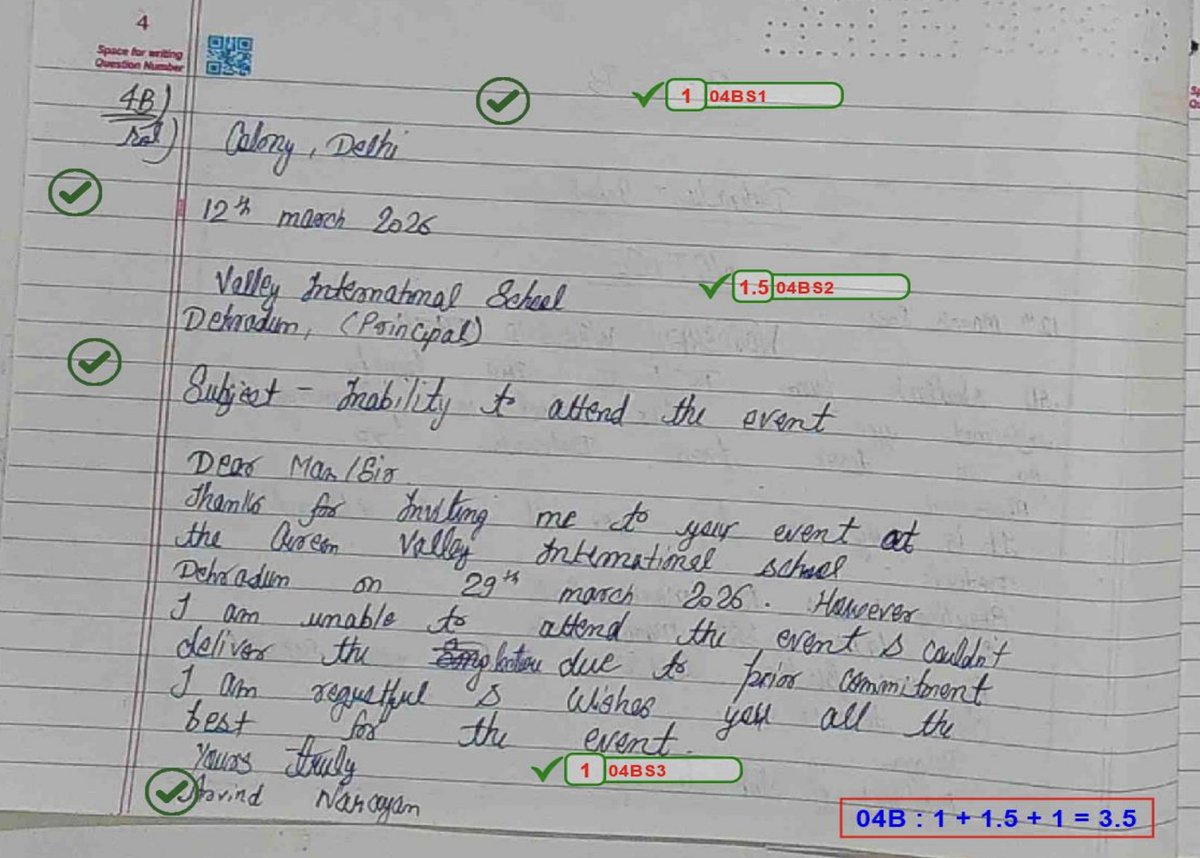 4
Space for writing
Question Number
4B)
sol)
1 04BS1
Colony, Delhi
12th march 2026
Valley International School
1.5 04BS2
Dehradun, (Principal)
Subject - Inability to attend the event
Dear Mam/Sir
Thanks for Inviting me to your event at
the Green Valley International school
Dehradun on 29th march 2026. However
I am unable to attend the event & couldn't
deliver the due to prior commitment
I am regretful & wishes you all the
best for the event.
Yours Truly
1 04BS3
Arvind Narayan
04B : 1 + 1.5 + 1 = 3.5